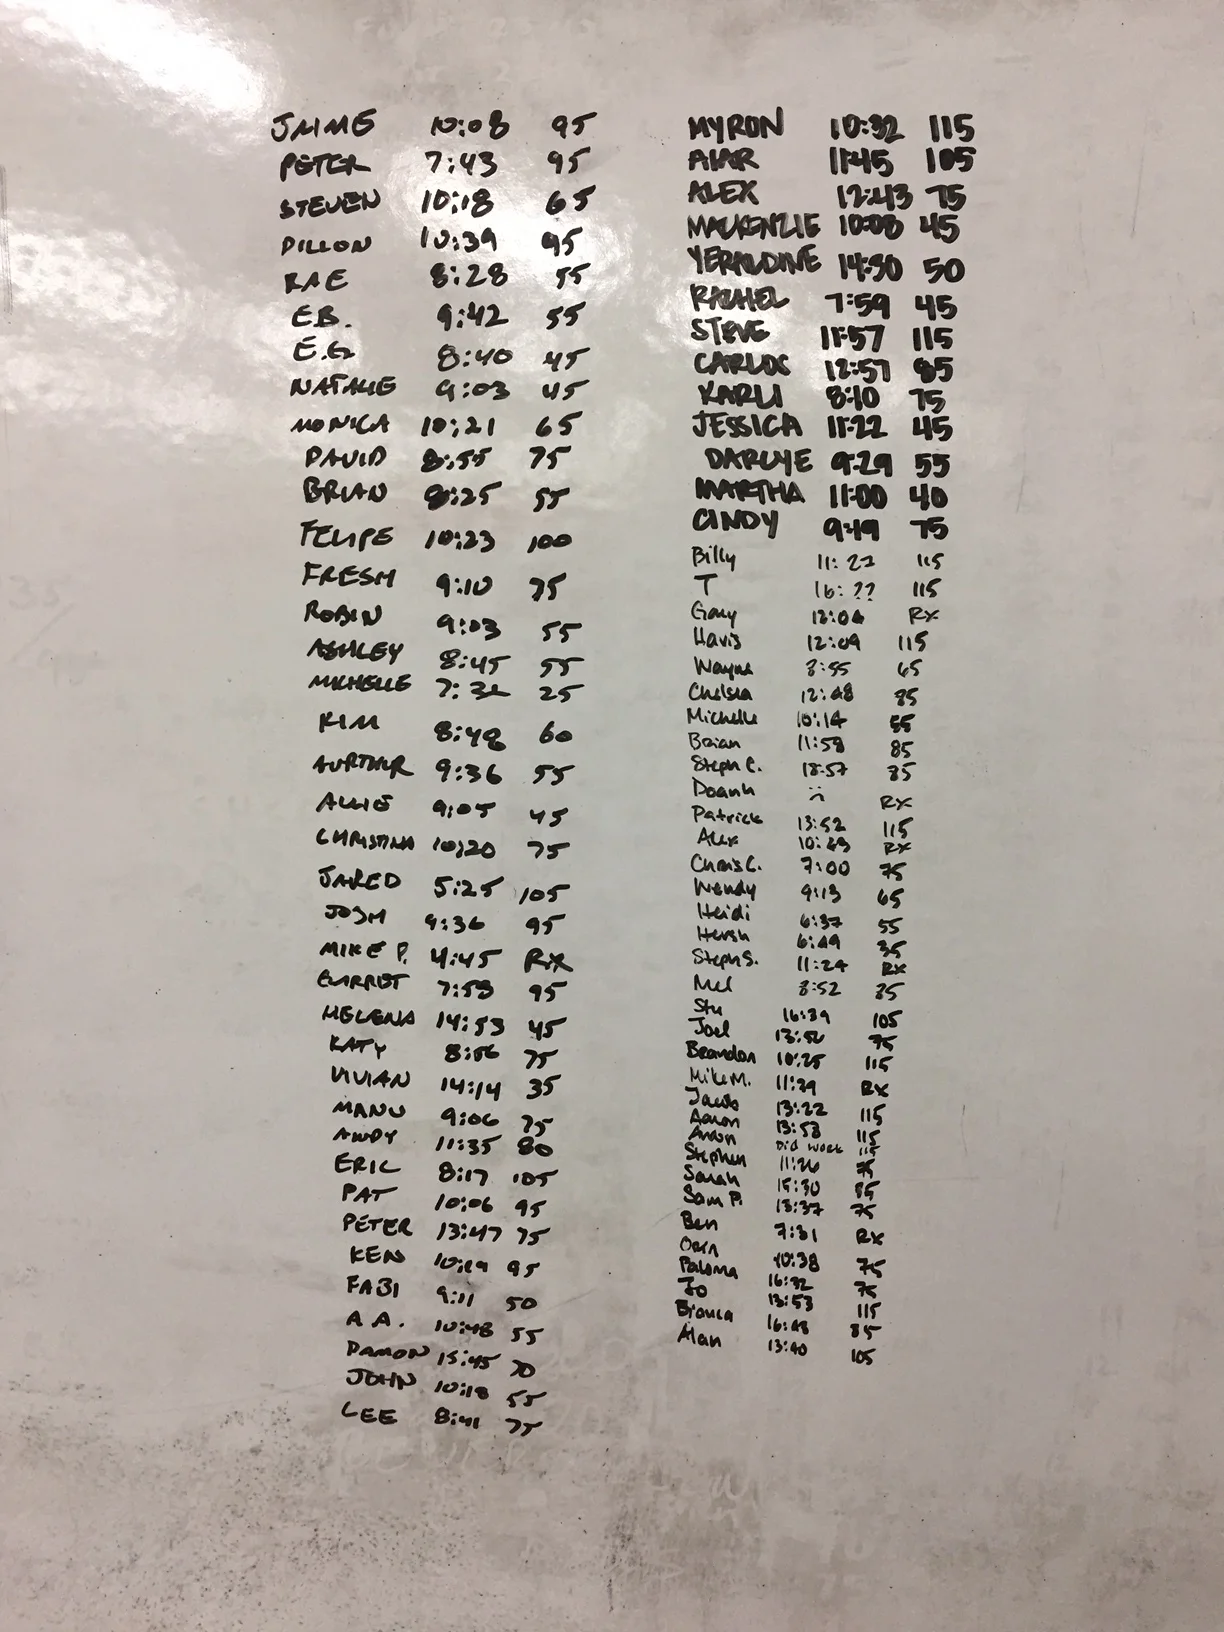 JAIME 10:08 95
PETER 7:43 95
STEVEN 10:18 65
DILLON 10:39 95
RAE 8:28 55
E.B. 9:42 55
E.G 8:40 45
NATALIE 9:03 45
MONICA 10:21 65
DAVID 8:55 75
BRIAN 8:25 55
FELIPE 10:23 100
FRESH 9:10 75
ROBIN 9:03 55
ASHLEY 8:45 55
MICHELLE 7:32 25
KIM 8:48 60
AURTHUR 9:36 55
ALLIE 9:05 45
CHRISTINA 10:20 75
JARED 5:25 105
JOSH 9:36 95
MIKE P. 4:45 RX
GARRET 7:53 95
HELENA 14:53 45
KATY 8:56 75
VIVIAN 14:14 35
MANU 9:06 75
ANDY 11:35 80
ERIC 8:17 105
PAT 10:06 95
PETER 13:47 75
KEN 10:19 95
FABI 9:11 50
A.A. 10:48 55
DAMON 15:45 70
JOHN 10:18 55
LEE 8:41 75
MYRON 10:32 115
11:45 105
ALEX 12:43 75
MACKENZIE 10:08 45
YERALDINE 14:30 50
RACHEL 7:59 45
STEVE 11:57 115
CARLOS 12:57 85
KARLI 8:10 75
JESSICA 11:22 45
DARLYE 9:29 55
MARTHA 11:00 40
CINDY 9:49 75
Billy 11:22 115
T 16:?? 115
Gary 12:06 RX
Havis 12:09 115
Wayne 8:55 65
Chelsea 12:48 85
Michelle 10:14 55
Brian 11:58 85
Steph C. 13:57 85
Doanh :( RX
Patrick 13:52 115
Alex 10:23 RX
Chris C. 7:00 75
Wendy 9:13 65
Heidi 6:37 55
Hersh 6:49 35
Steph S. 11:24 RX
Mel 8:52 85
Stu 16:39 105
Joel 13:56 75
Brandon 10:25 115
Mike M. 11:29 RX
Jacob 13:22 115
Aaron 13:53 115
Did work 115
Stephen 11:26 75
Sarah 15:30 85
Sam P. 13:37 75
Ben 7:31 RX
Oren 10:38 75
Paloma 16:32 75
Jo 13:53 115
Bianca 16:48 85
Alan 13:40 105